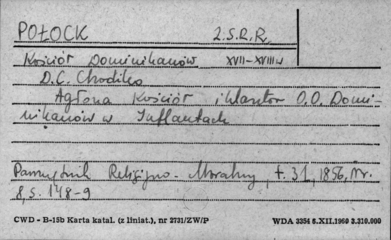 POŁOCK Z.S.R.R.
Kościół Dominikanów XVII-XVIII w
D.C. Chodźko
Agłona Kościół i klasztor O.O. Domi-
nikanów w Inflantach
Pamiętnik Religijno-Moralny, t. 31, 1856, Nr.
8, s. 148-9
CWD - B-15b Karta katal. (z liniat.), nr 2731/ZW/P WDA 3354 6.XII.1960 3.310.000